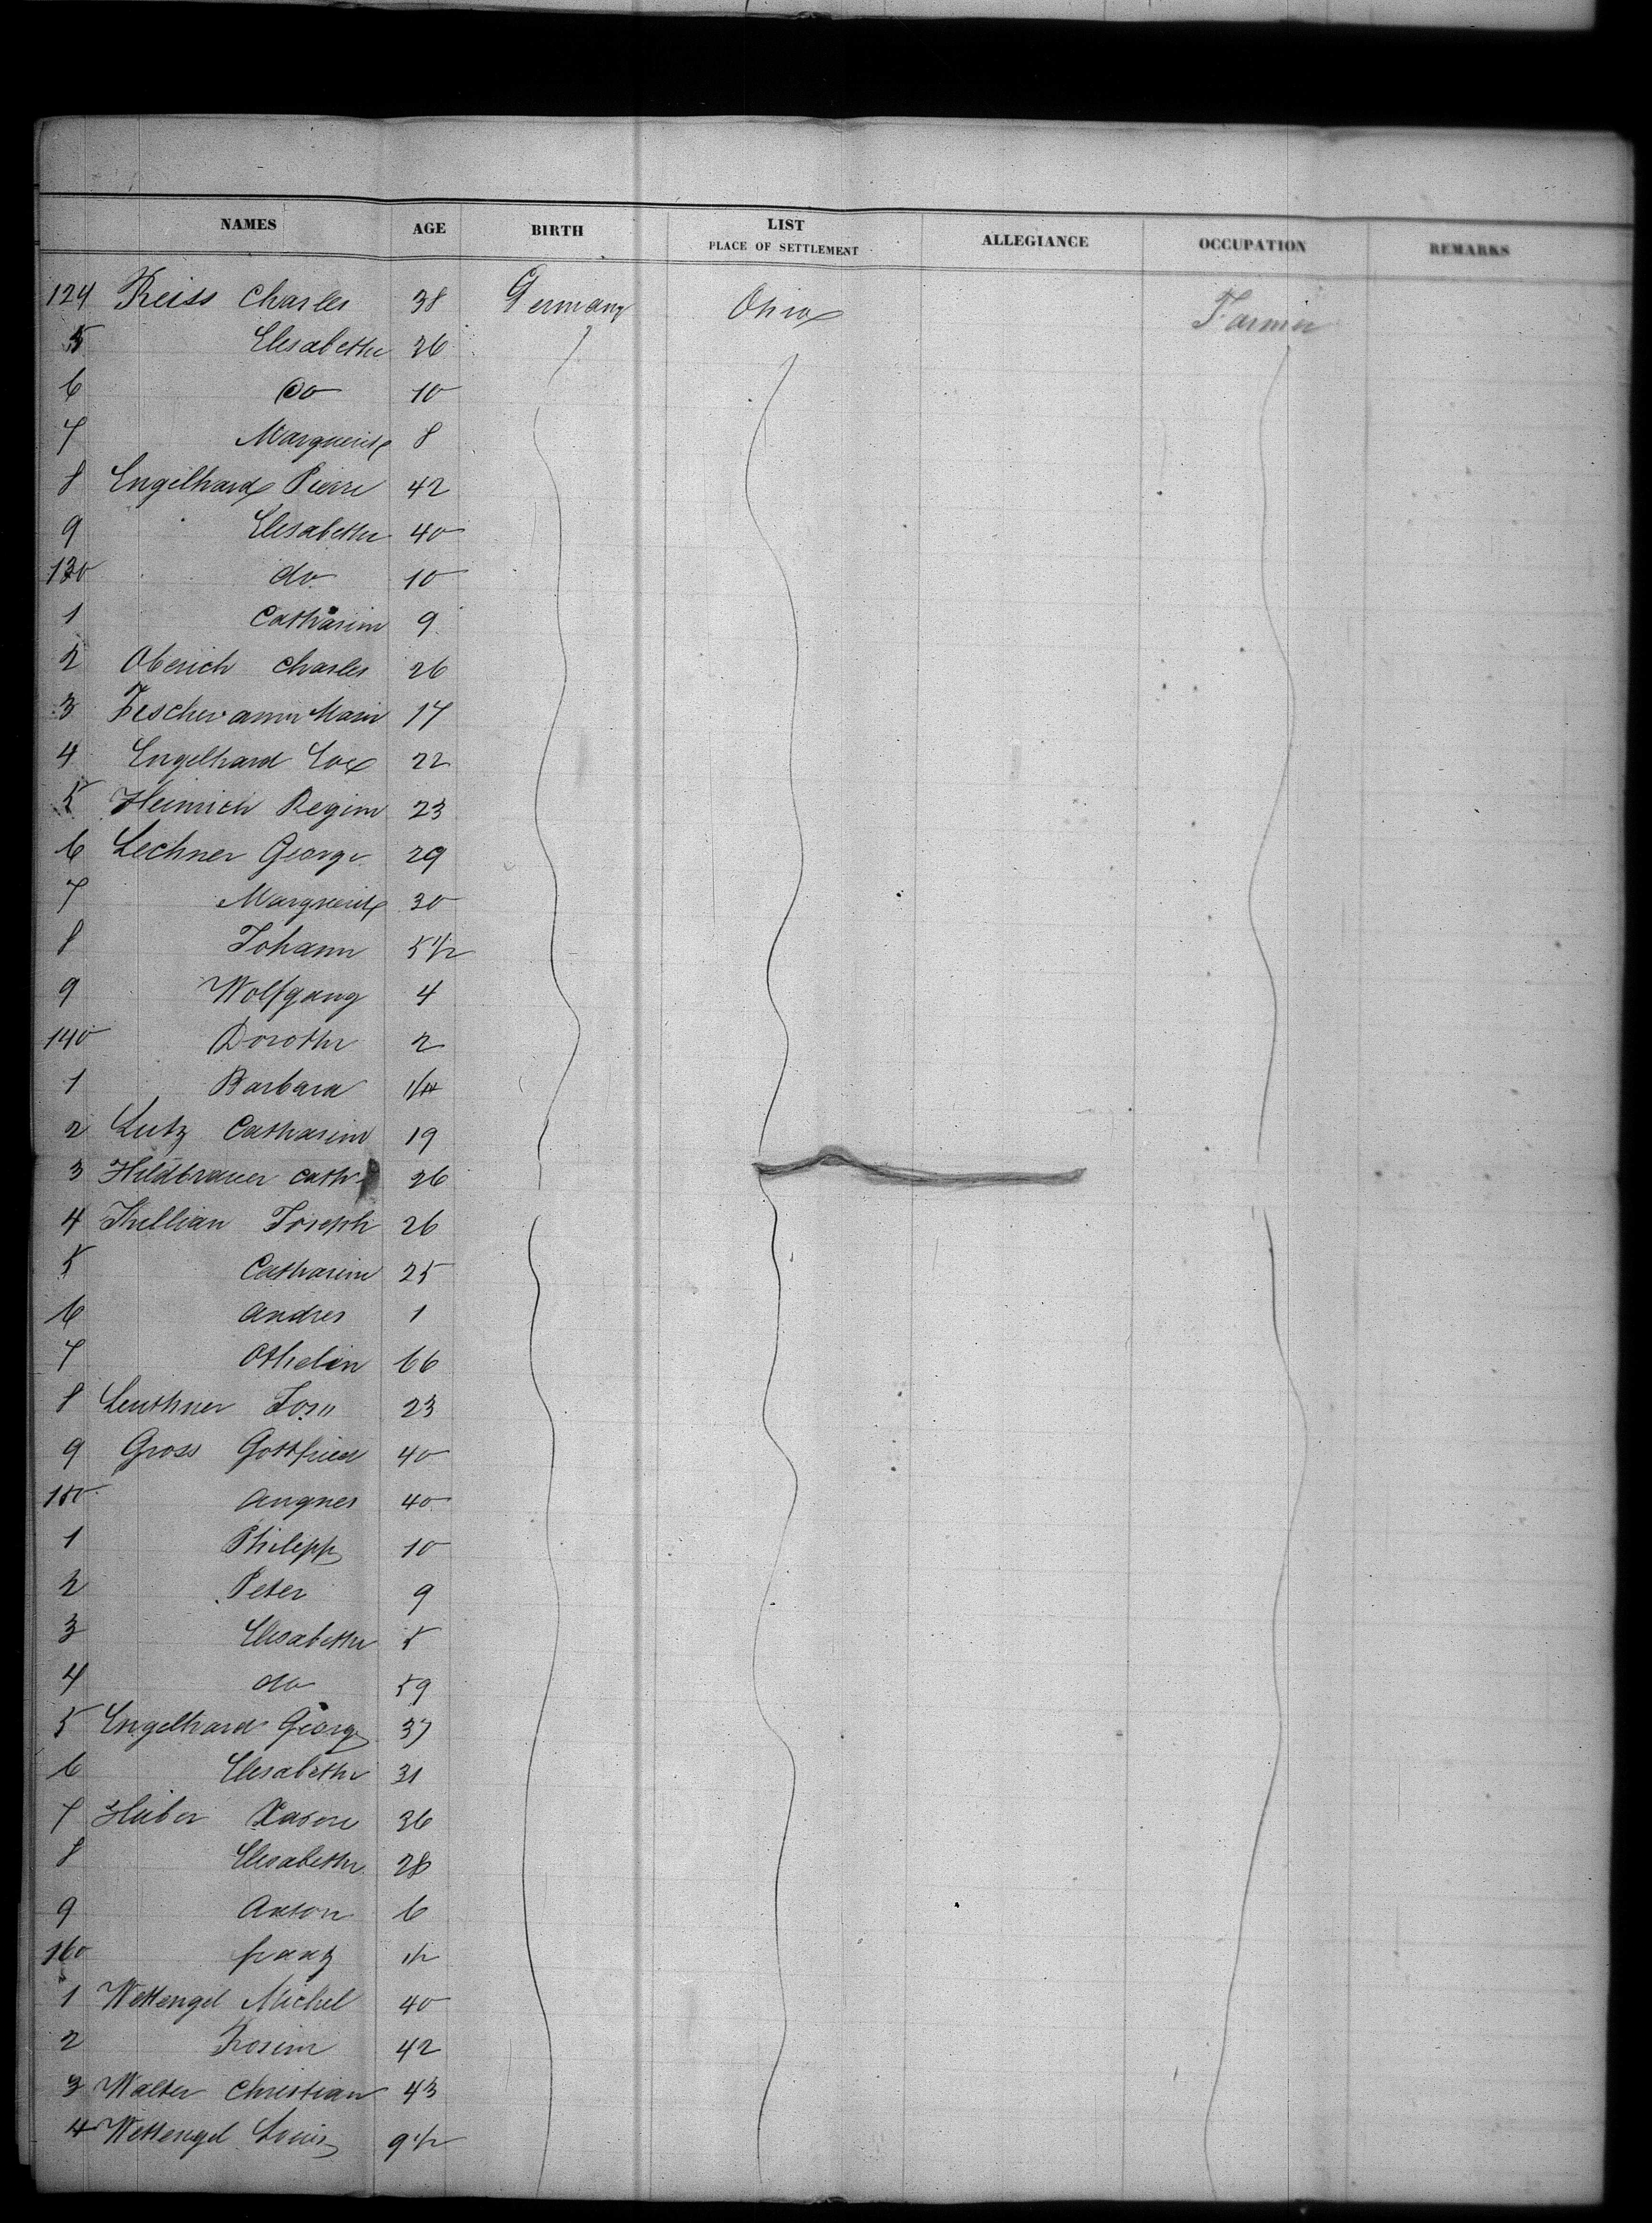 NAMES AGE BIRTH LIST PLACE OF SETTLEMENT ALLEGIANCE OCCUPATION REMARKS
124 Reiss Charles 38 Germany Ohio Farmer
5 Elisabethe 26
6 Do 10
7 Marguerite 8
8 Engelhard Pierre 42
9 Elisabethe 40
130 do 10
1 Catharine 9
2 Oberich Charles 26
3 Fescher anna Marie 17
4 Engelhard Eve 22
5 Heinrich Regine 23
6 Lechner George 29
7 Marguerite 30
8 Johann 5 1/2
9 Wolfgang 4
140 Dorothe 2
1 Barbara 1/4
2 Lutz Catharine 19
3 Hildbrauer Cath 26
4 Khillian Joseph 26
5 Catharine 25
6 Andres 1
7 Othelin 66
8 Leuthner 23
9 Gross Gottfried 40
150 Angnes 40
1 Philipp 10
2 Peter 9
3 Elisabethe 5
4 do 59
5 Engelhard Georg 37
6 Elesabethe 31
7 Huber Xavere 36
8 Elisabethe 28
9 Anton 6
160 franz 1/2
1 Wettengel Michel 40
2 Rosine 42
3 Walter Christian 43
4 Wettengel Louis 9 1/2